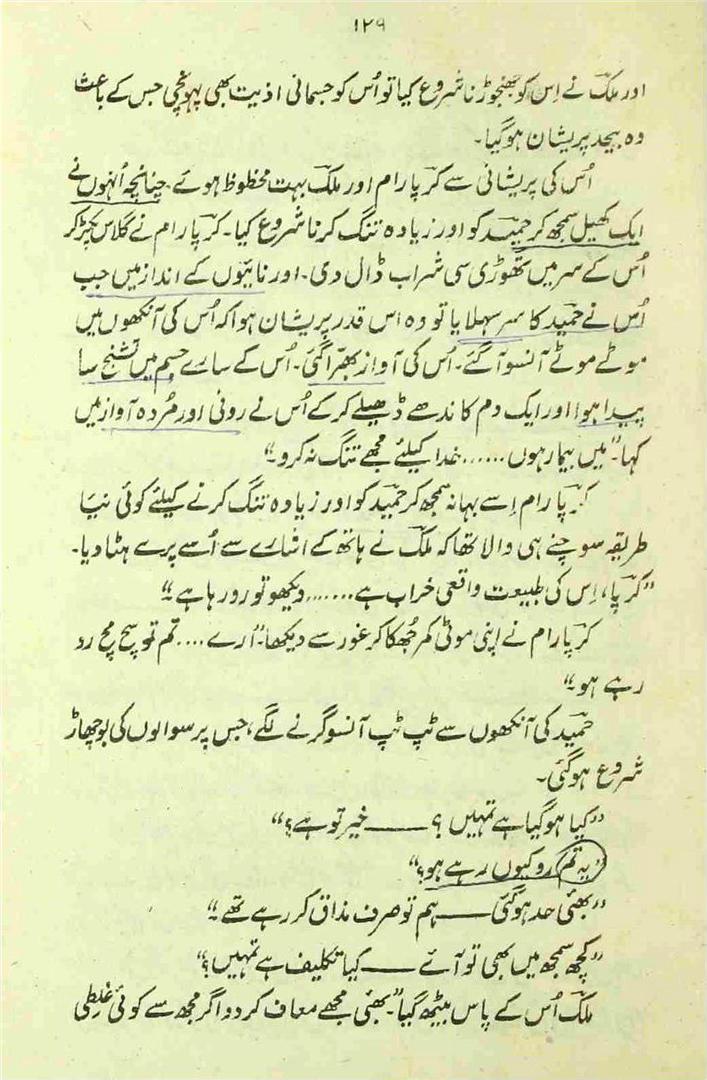 ۱۲۹
اور ملک نے اِس کو جھنجوڑنا شروع کیا تو اُس کو جسمانی اذیت بھی پہونچی جس کے باعث
وہ بیحد پریشان ہوگیا۔
اُس کی پریشانی سے کرپا رام اور ملک بہت محظوظ ہوئے۔ چنانچہ اُنہوں نے
ایک کھیل سمجھ کر حمید کو اور زیادہ تنگ کرنا شروع کیا۔ کرپا رام نے گلاس پکڑ کر
اُس کے سر میں تھوڑی سی شراب ڈال دی۔ اور نائیوں کے انداز میں جب
اُس نے حمید کا سر سہلایا تو وہ اس قدر پریشان ہوا کہ اُس کی آنکھوں میں
موٹے موٹے آنسو آگئے۔ اُس کی آواز بھرّا گئی۔ اُس کے سارے جسم میں تشنج سا
پیدا ہوا اور ایک دم کاندھے ڈھیلے کرکے اُس نے رونی اور مُردہ آواز میں
کہا۔ ”میں بیمار ہوں ...... خدا کیلئے مجھے تنگ نہ کرو۔“
کرپا رام اِسے بہانہ سمجھ کر حمید کو اور زیادہ تنگ کرنے کیلئے کوئی نیا
طریقہ سوچنے ہی والا تھا کہ ملک نے ہاتھ کے اشارے سے اُسے پرے ہٹا دیا۔
”کرپا، اِس کی طبیعت واقعی خراب ہے ....... دیکھو تو رو رہا ہے۔“
کرپا رام نے اپنی موٹی کمر جُھکا کر غور سے دیکھا۔ ”ارے .... تم تو سچ مچ رو
رہے ہو۔“
حمید کی آنکھوں سے ٹپ ٹپ آنسو گرنے لگے، جس پر سوالوں کی بوچھاڑ
شروع ہوگئی۔
”کیا ہوگیا ہے تمہیں ؟ —— خیر تو ہے؟“
”یہ تم رو کیوں رہے ہو؟“
”بھئی حد ہوگئی —— ہم تو صرف مذاق کر رہے تھے۔“
”کچھ سمجھ میں بھی تو آئے —— کیا تکلیف ہے تمہیں؟“
ملک اُس کے پاس بیٹھ گیا۔ ”بھئی مجھے معاف کردو اگر مجھ سے کوئی غلطی